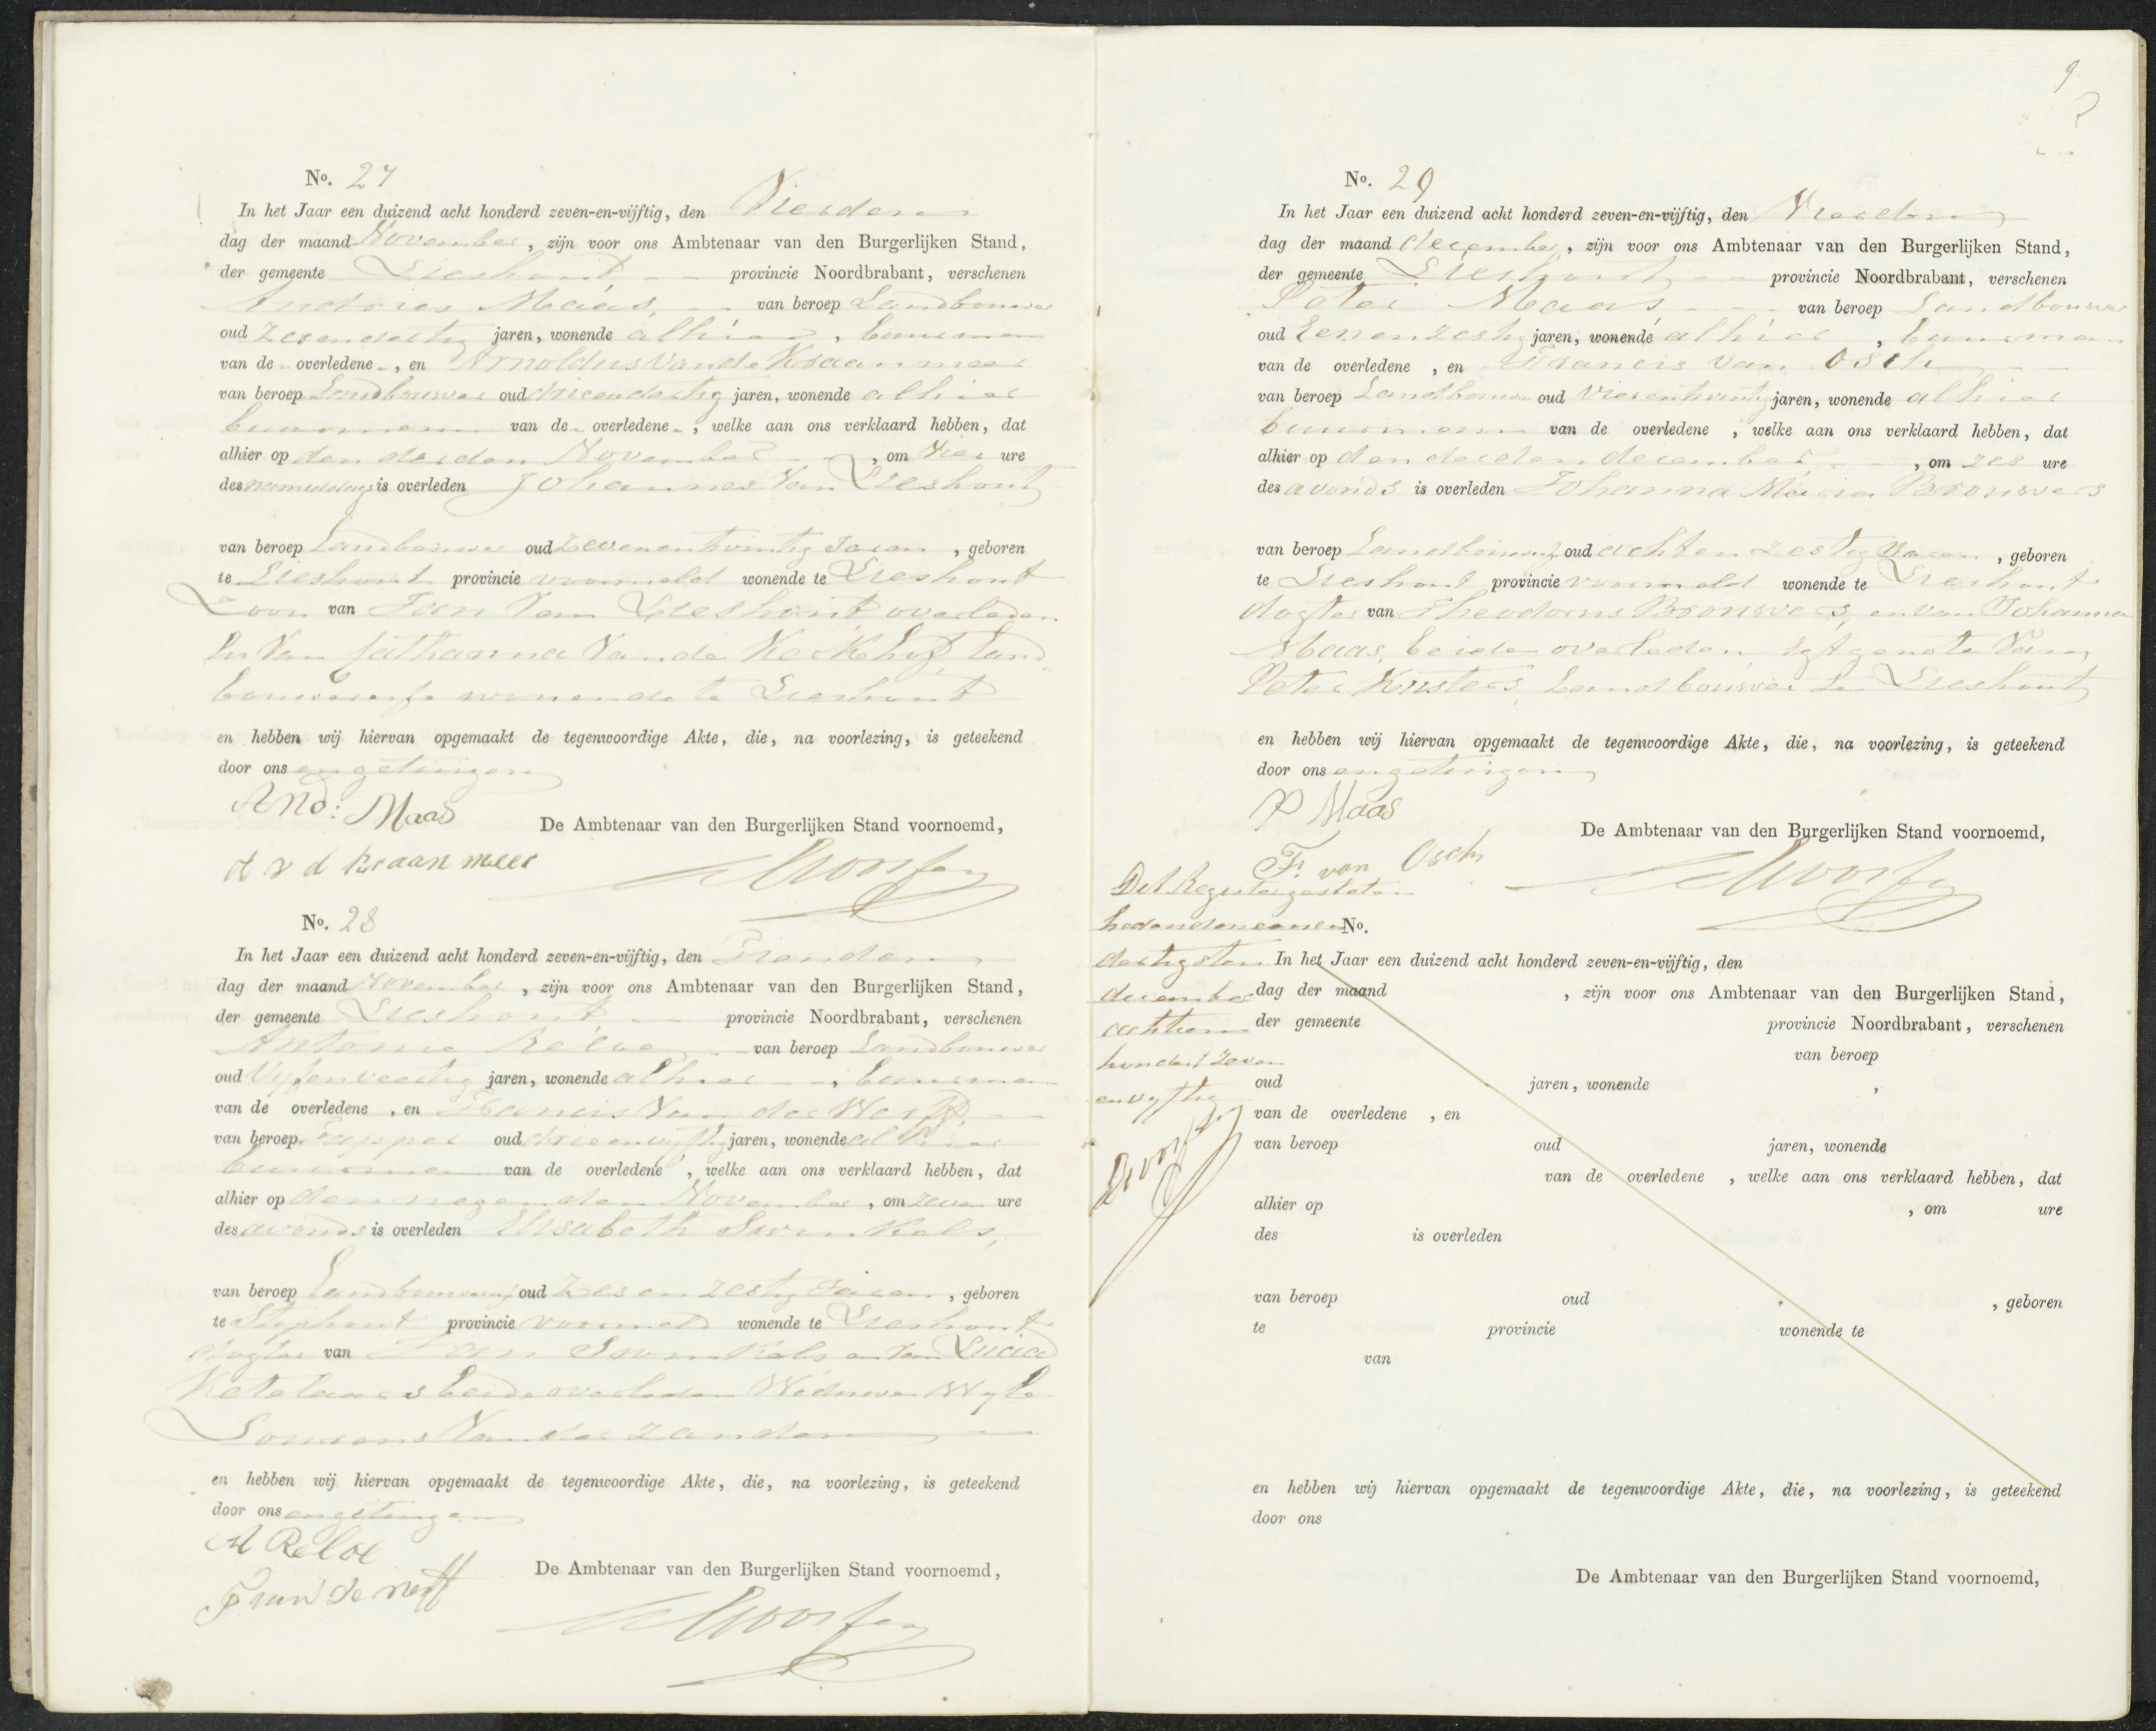 No. 27
In het Jaar een duizend acht honderd zeven-en-vijftig, den Vierden
dag der maand November, zijn voor ons Ambtenaar van den Burgerlijken Stand,
der gemeente Lieshout provincie Noordbrabant, verschenen
Andries Maas, van beroep Landbouwer
oud zesendertig jaren, wonende alhier, buurman
van de overledene, en Arnoldus van de Kraanmeer
van beroep Landbouwer oud drieendertig jaren, wonende alhier
buurman van de overledene, welke aan ons verklaard hebben, dat
alhier op den derden November, om vier ure
des namiddags is overleden Johannes Van Lieshout
van beroep Landbouwer oud zevenentwintig Jaren, geboren
te Lieshout provincie voormeld wonende te Lieshout
Zoon van Jan Van Lieshout, overleden
En Van Catharina Van de Kerkhof, Land
bouweresse wonende te Lieshout
en hebben wij hiervan opgemaakt de tegenwoordige Akte, die, na voorlezing, is geteekend
door ons en getuigen
And: Maas
De Ambtenaar van den Burgerlijken Stand voornoemd,
A v d kraan meer
No. 28
In het Jaar een duizend acht honderd zeven-en-vijftig, den Tienden
dag der maand November, zijn voor ons Ambtenaar van den Burgerlijken Stand,
der gemeente Lieshout provincie Noordbrabant, verschenen
Antonie Reloe van beroep Landbouwer
oud Vyfenveertig jaren, wonende alhier, buurman
van de overledene, en Francis Van der Werff
van beroep Tapper oud drieenvyftig jaren, wonende alhier
buurman van de overledene, welke aan ons verklaard hebben, dat
alhier op den negenden November, om zeven ure
des avonds is overleden Elisabeth Swinkels,
van beroep Landbouwersche oud zes en zestig Jaren, geboren
te Stiphout provincie voormeld wonende te Lieshout
dogter van Jan Swinkels en van Lucia
Ketelaars beide overleden Weduwe Wyle
Lourens Van der Zanden
en hebben wij hiervan opgemaakt de tegenwoordige Akte, die, na voorlezing, is geteekend
door ons en getuigen
A Reloe
De Ambtenaar van den Burgerlijken Stand voornoemd,
9
No. 29
In het Jaar een duizend acht honderd zeven-en-vijftig, den Vierden
dag der maand december, zijn voor ons Ambtenaar van den Burgerlijken Stand,
der gemeente Lieshout provincie Noordbrabant, verschenen
Peter Maas van beroep Landbouwer
oud Eenenzestig jaren, wonende alhier, buurman
van de overledene, en Francis van Osch
van beroep Landbouwer oud Vierentwintig jaren, wonende alhier
buurman van de overledene, welke aan ons verklaard hebben, dat
alhier op den derden december, om zes ure
des avonds is overleden Johanna Maria Brouwers
van beroep Landbouwersche oud achtenzestig Jaren, geboren
te Lieshout provincie voormeld wonende te Lieshout
dogter van Theodorus Brouwers, en van Johanna
Maas, beide overleden, egtgenote Van
Peter Kusters, Landbouwer te Lieshout
en hebben wij hiervan opgemaakt de tegenwoordige Akte, die, na voorlezing, is geteekend
door ons en getuigen
P Maas
De Ambtenaar van den Burgerlijken Stand voornoemd,
F. van Osch
Dit Register gesloten
heden den eenen
dertigsten
december
achttien
hondert zeven
en vyftig
No.
In het Jaar een duizend acht honderd zeven-en-vijftig, den
dag der maand , zijn voor ons Ambtenaar van den Burgerlijken Stand,
der gemeente provincie Noordbrabant, verschenen
van beroep
oud jaren, wonende ,
van de overledene , en
van beroep oud jaren, wonende
van de overledene , welke aan ons verklaard hebben, dat
alhier op , om ure
des is overleden
van beroep oud , geboren
te provincie wonende te
van
en hebben wij hiervan opgemaakt de tegenwoordige Akte, die, na voorlezing, is geteekend
door ons
De Ambtenaar van den Burgerlijken Stand voornoemd,